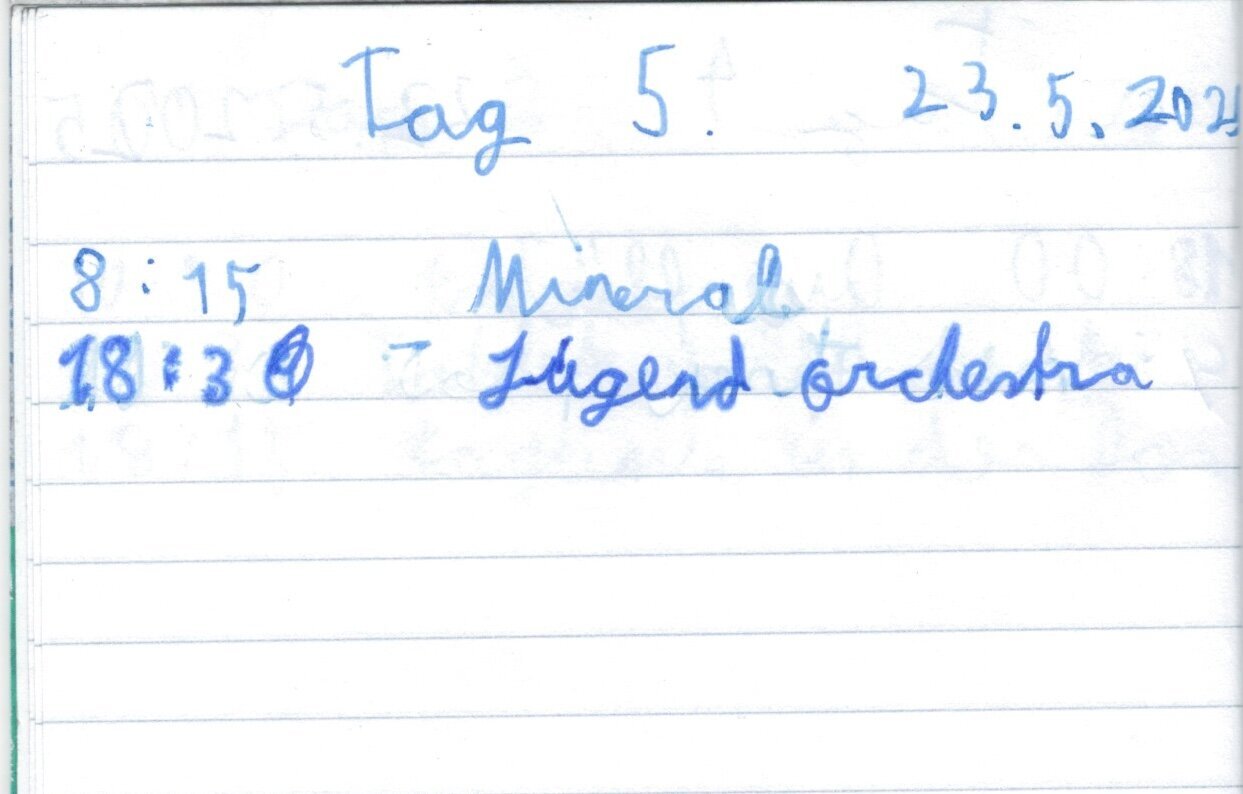 Tag 5. 23.5.202
8:15 Mineral
18:30 - Jugend orchestra